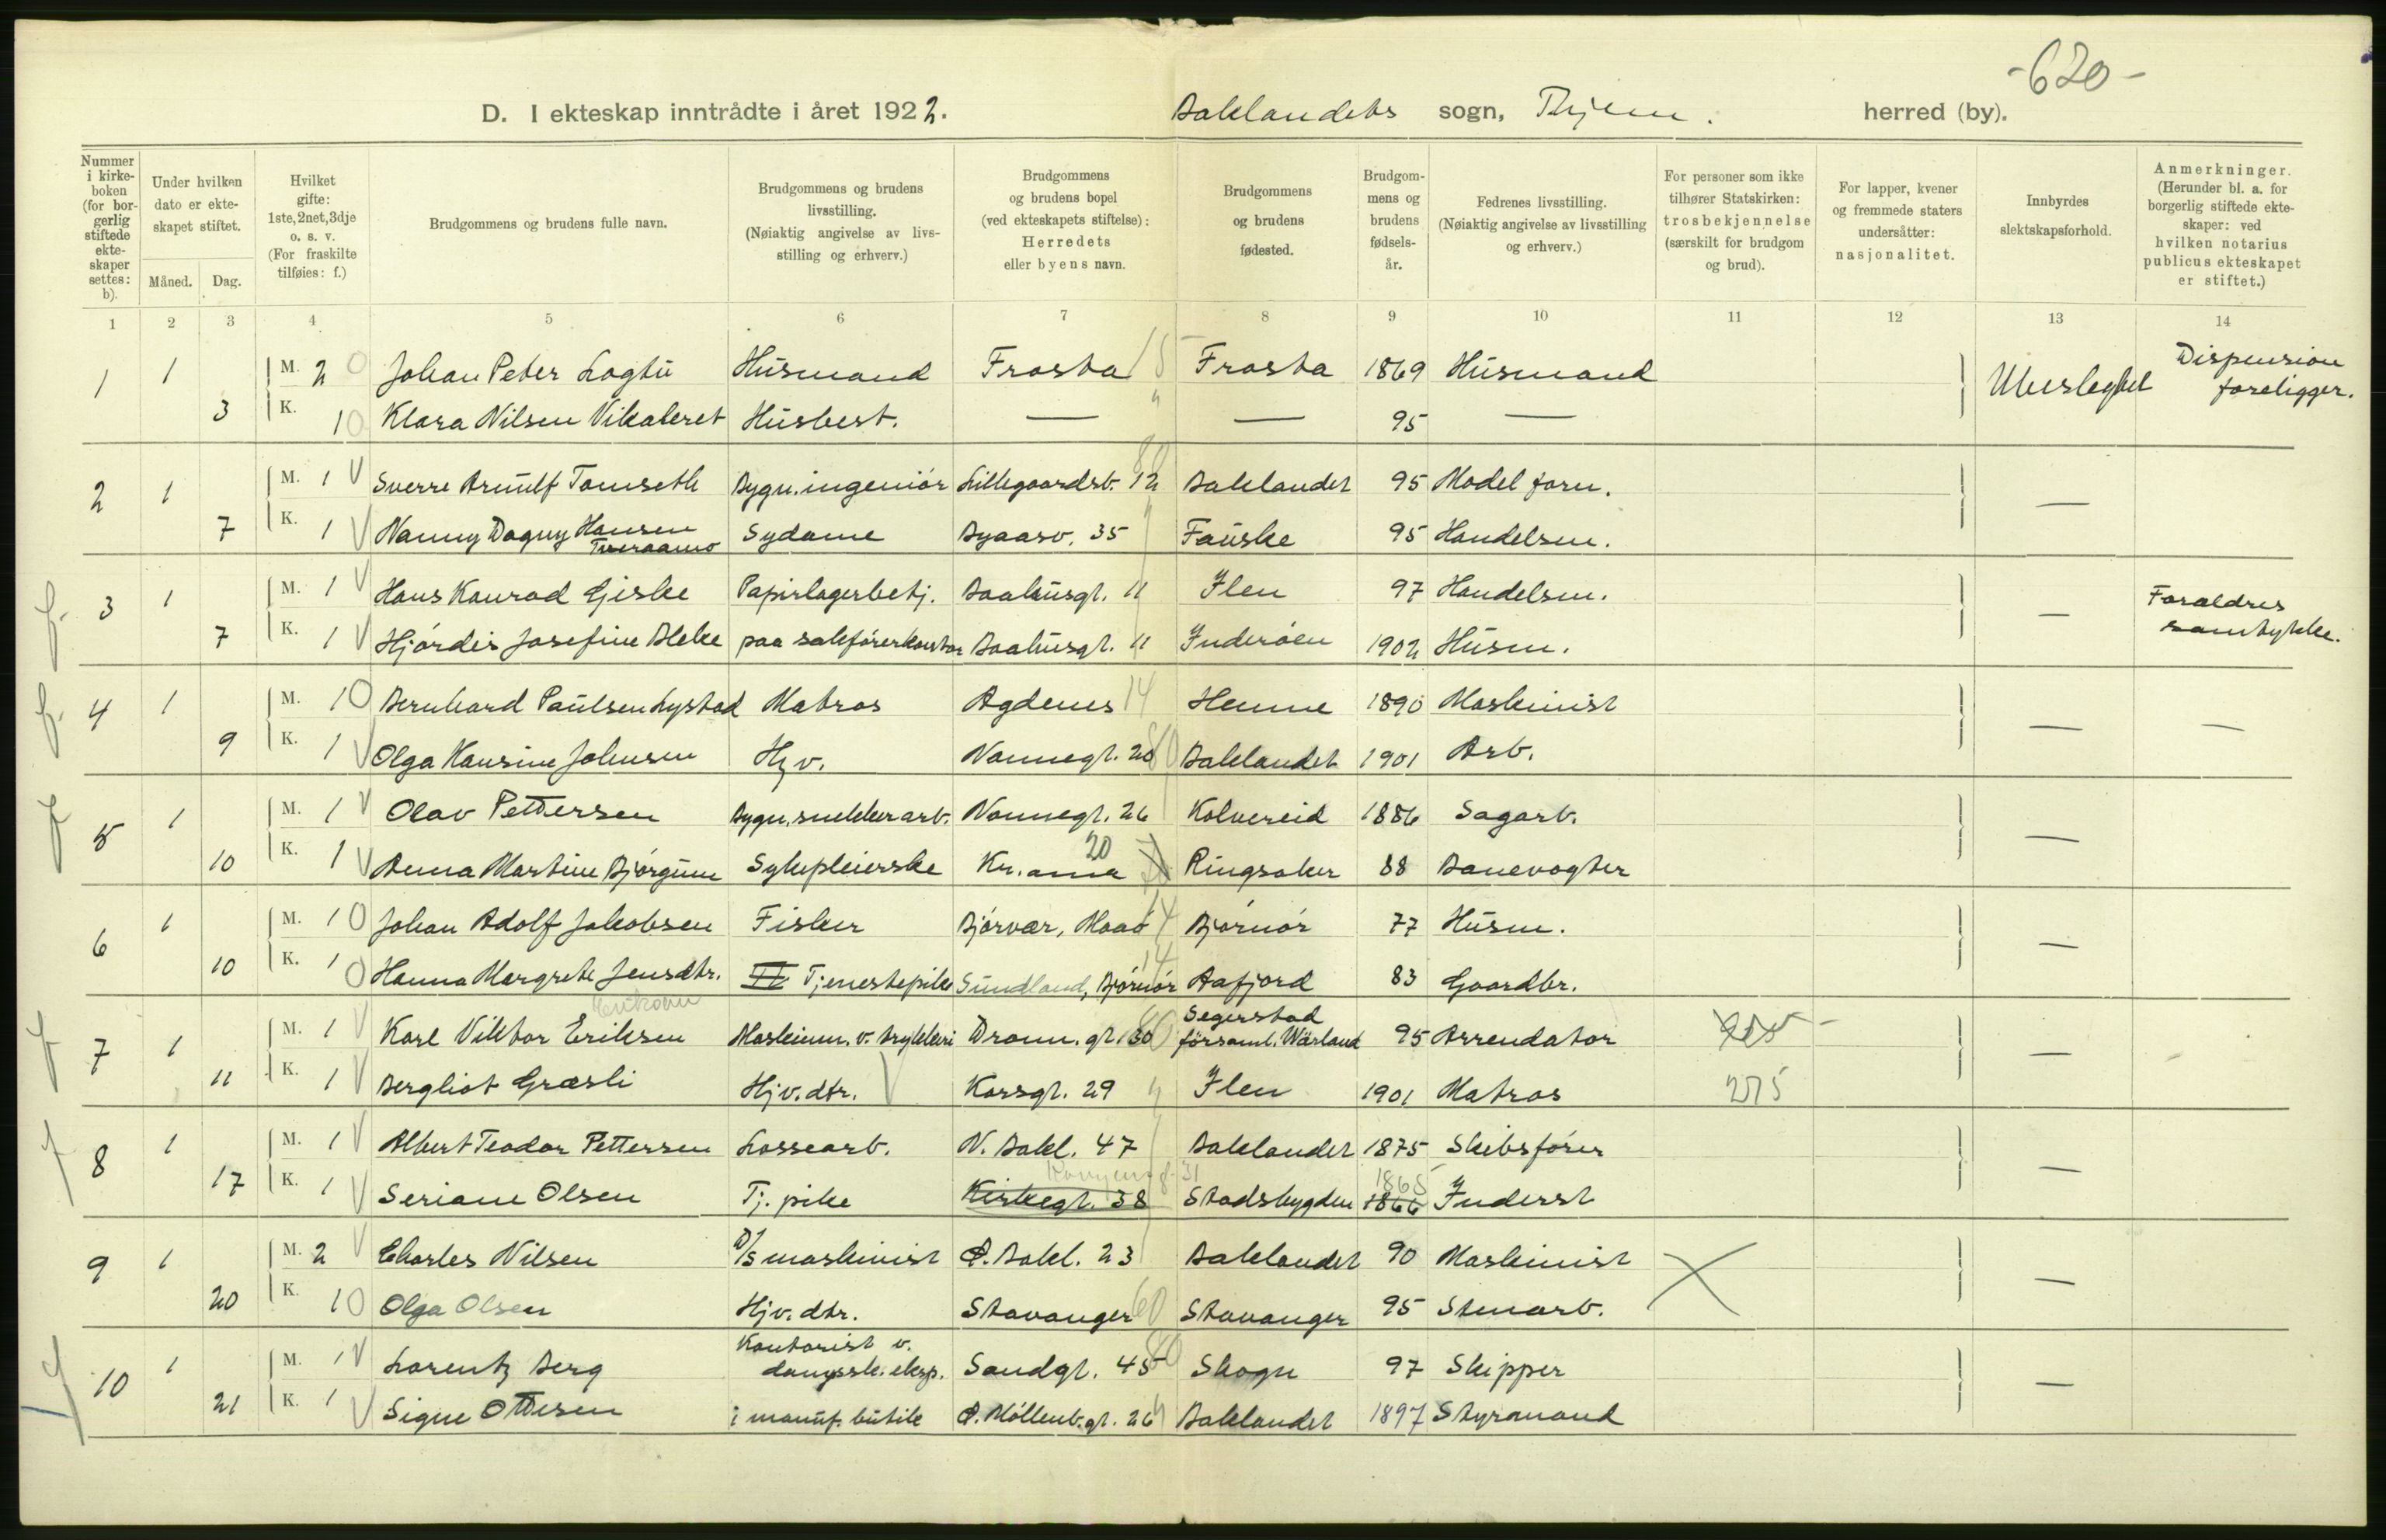 -620-
D. I ekteskap inntrådte i året 1922. Baklandets sogn, Thjem. herred (by).
Nummer i kirke-boken (for bor-gerlig stiftede ekte-skaper settes: b).
Under hvilken dato er ekte-skapet stiftet.
Måned. Dag.
Hvilket gifte: 1ste, 2net, 3dje o. s. v. (For fraskilte tilføies: f.)
Brudgommens og brudens fulle navn.
Brudgommens og brudens livsstilling. (Nøiaktig angivelse av livs-stilling og erhverv.)
Brudgommens og brudens bopel (ved ekteskapets stiftelse): Herredets eller byens navn.
Brudgommens og brudens fødested.
Brudgom-mens og brudens fødsels-år.
Fedrenes livsstilling. (Nøiaktig angivelse av livsstilling og erhverv.)
For personer som ikke tilhører Statskirken: trosbekjennelse (særskilt for brudgom og brud).
For lapper, kvener og fremmede staters undersåtter: nasjonalitet.
Innbyrdes slektskapsforhold.
Anmerkninger. (Herunder bl. a. for borgerlig stiftede ekte-skaper: ved hvilken notarius publicus ekteskapet er stiftet.)
1 2 3 4 5 6 7 8 9 10 11 12 13 14
1 1 M. 2 0 Johan Peter Logtu Husmand Frosta 15 Frosta 1869 Husmand Ubeslegtet Dispension foreligger.
3 K. 1 0 Klara Nilsen Vikaleret Husbest. — " — 95 —
2 1 M. 1 V Sverre Arnulf Tomseth Bygn.ingeniör Lillegaardsb. 12 80 Baklandet 95 Model forn. —
7 K. 1 V Nanny Dagny Hansen Sydame Byaasv. 35 " Fauske 95 Handelsm.
f. 3 1 M. 1 V Hans Konrad Giske Papirlagerbetj. Baahusgt. 11 Ilen 97 Handelsm. — Foraldres samtykke.
7 K. 1 V Hjördis Josefine Bleke paa sakförerkontor Baahusgt. 11 Inderöen 1902 Husm.
f. 4 1 M. 1 0 Bernhard Paulsen Lystad Matros Agdenes 14 Hemne 1890 Maskinist — —
9 K. 1 V Olga Hansine Johnsen Hjv. Nonnegt. 20 80 Baklandet 1901 Arb.
f 5 1 M. 1 V Olav Pettersen Bygn.snekkerarb. Nonnegt. 26 Kolvereid 1886 Sagarb. —
10 K. 1 V Anna Martine Björgum Sykepleierske Kr.ania 20 Ringsaker 88 Banevogter
6 1 M. 1 0 Johan Adolf Jakobsen Fisker Björvær, Maaö 14 Björnör 77 Husm. —
10 K. 1 0 Hanna Margrete Jensdtr. Tjenestepike Sundland, Björnör 14 Aafjord 83 Gaardbr.
f 7 1 M. 1 V Karl Viktor Eriksen Maskinm. v. trykkeri Dronn.gt. 30 80 Segerstad församl. Wärland 95 Arrendator —
11 K. 1 V Bergliot Græsli Hjv.dtr. V Korsgt. 29 " Ilen 1901 Matros 275
f 8 1 M. 1 V Albert Teodor Pettersen Lossearb. N. Bakl. 47 Baklandet 1875 Skibsförer —
17 K. 1 V Seriane Olsen Tj. pike Kirkegt. 38 Stadsbygden 1866 1865 Inderst
9 1 M. 2 V Charles Nilsen D/S maskinist Ø. Bakl. 23 Baklandet 90 Maskinist X —
20 K. 1 0 Olga Olsen Hjv. dtr. Stavanger 60 Stavanger 95 Stenarb.
10 1 M. 1 V Lorentz Berg Kontorist v. dampsk. eksp. Sandgt. 45 80 Skogn 97 Skipper —
21 K. 1 V Signe Ottesen i manuf. butik Ø. Möllenb.gt. 26 " Baklandet 1897 Styrmand